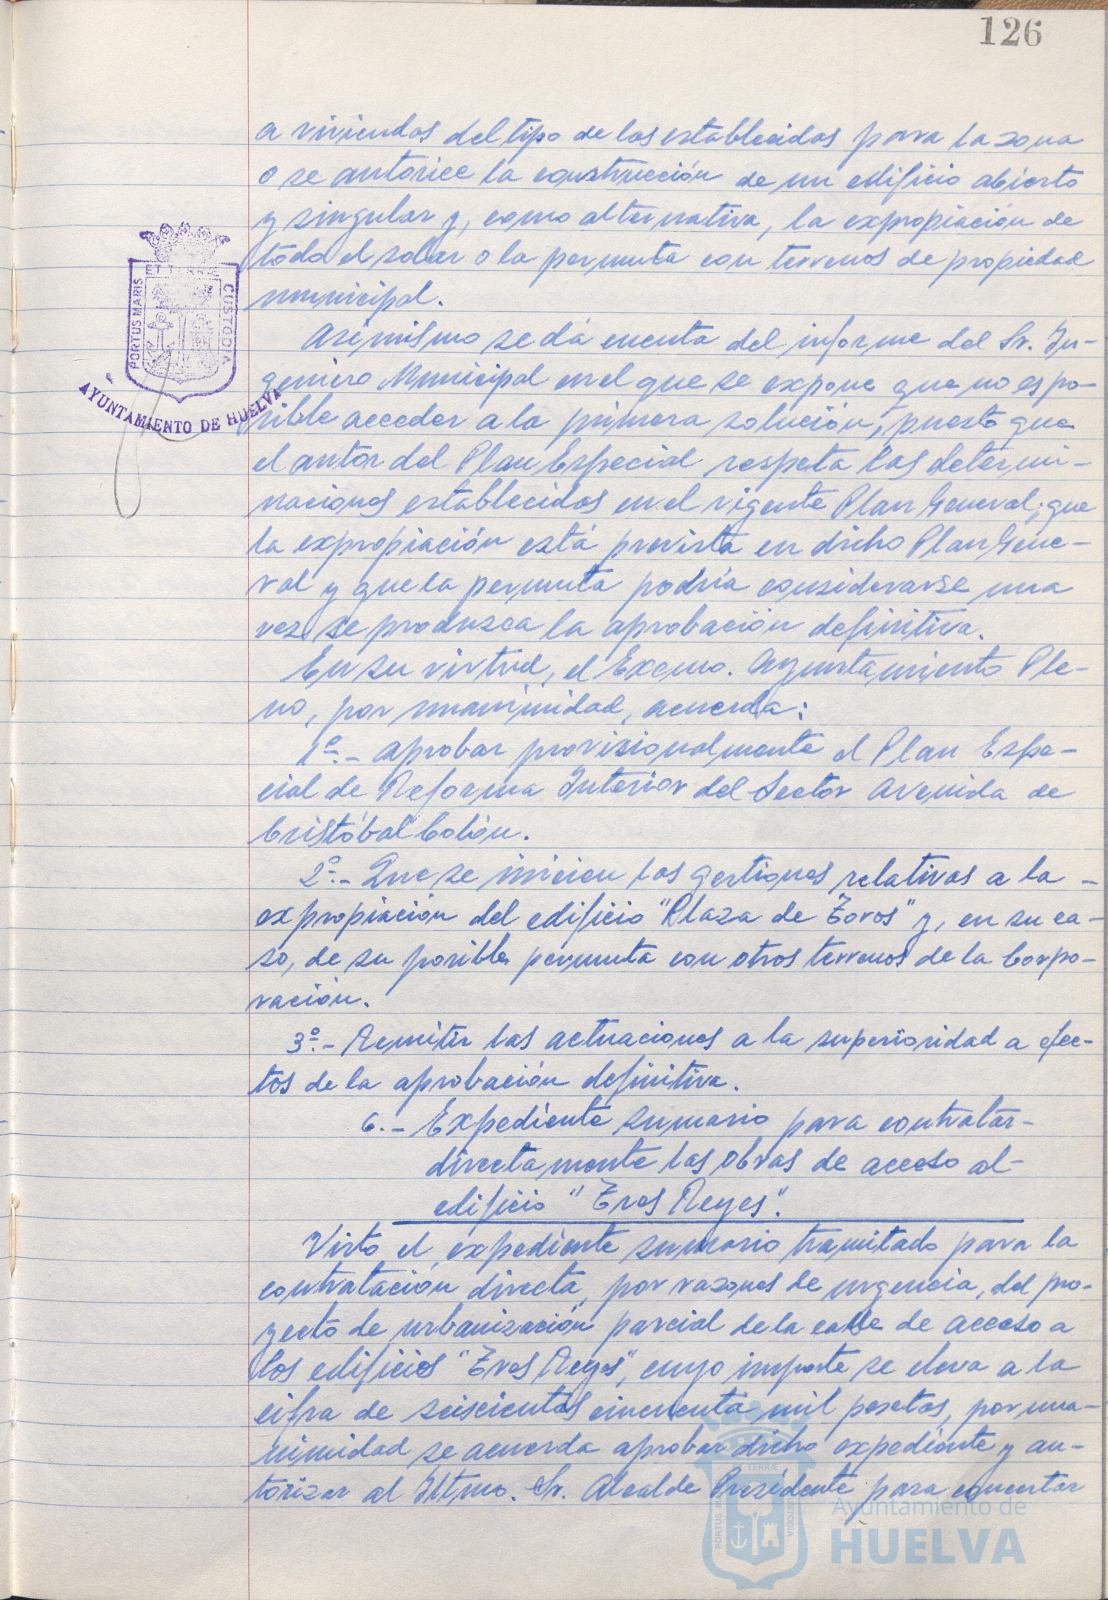 126
a viviendas del tipo de las establecidas para la zona
o se autorice la construcción de un edificio abierto
y singular y, como alternativa, la expropiación de
todo el solar o la permuta con terrenos de propiedad
municipal.
Asimismo se dá cuenta del informe del Sr. In-
geniero Municipal en el que se expone que no es po-
sible acceder a la primera solución, puesto que
el autor del Plan Especial respeta las determi-
naciones establecidas en el vigente Plan General; que
la expropiación está prevista en dicho Plan Gene-
ral y que la permuta podría considerarse una
vez se produzca la aprobación definitiva.
En su virtud, el Excmo. Ayuntamiento Ple-
no, por unanimidad, acuerda:
1º.- Aprobar provisionalmente el Plan Espe-
cial de Reforma Interior del Sector Avenida de
Cristóbal Colón.
2º.- Que se inicien las gestiones relativas a la -
expropiación del edificio "Plaza de Toros" y, en su ca-
so, de su posible permuta con otros terrenos de la Corpo-
ración.
3º.- Remitir las actuaciones a la superioridad a efec-
tos de la aprobación definitiva.
6.- Expediente sumario para contratar-
directamente las obras de acceso al-
edificio "Tres Reyes".
Visto el expediente sumario tramitado para la
contratación directa, por razones de urgencia, del pro-
yecto de urbanización parcial de la calle de acceso a
los edificios "Tres Reyes", cuyo importe se eleva a la
cifra de seiscientas cincuenta mil pesetas, por una-
nimidad se acuerda aprobar dicho expediente y au-
torizar al Iltmo. Sr. Alcalde Presidente para concertar
PORTUS MARIS
ET TERRÆ
CUSTODIA
AYUNTAMIENTO DE HUELVA
PORTUS MARIS
TERRÆ
CUSTODIA
Ayuntamiento de
HUELVA